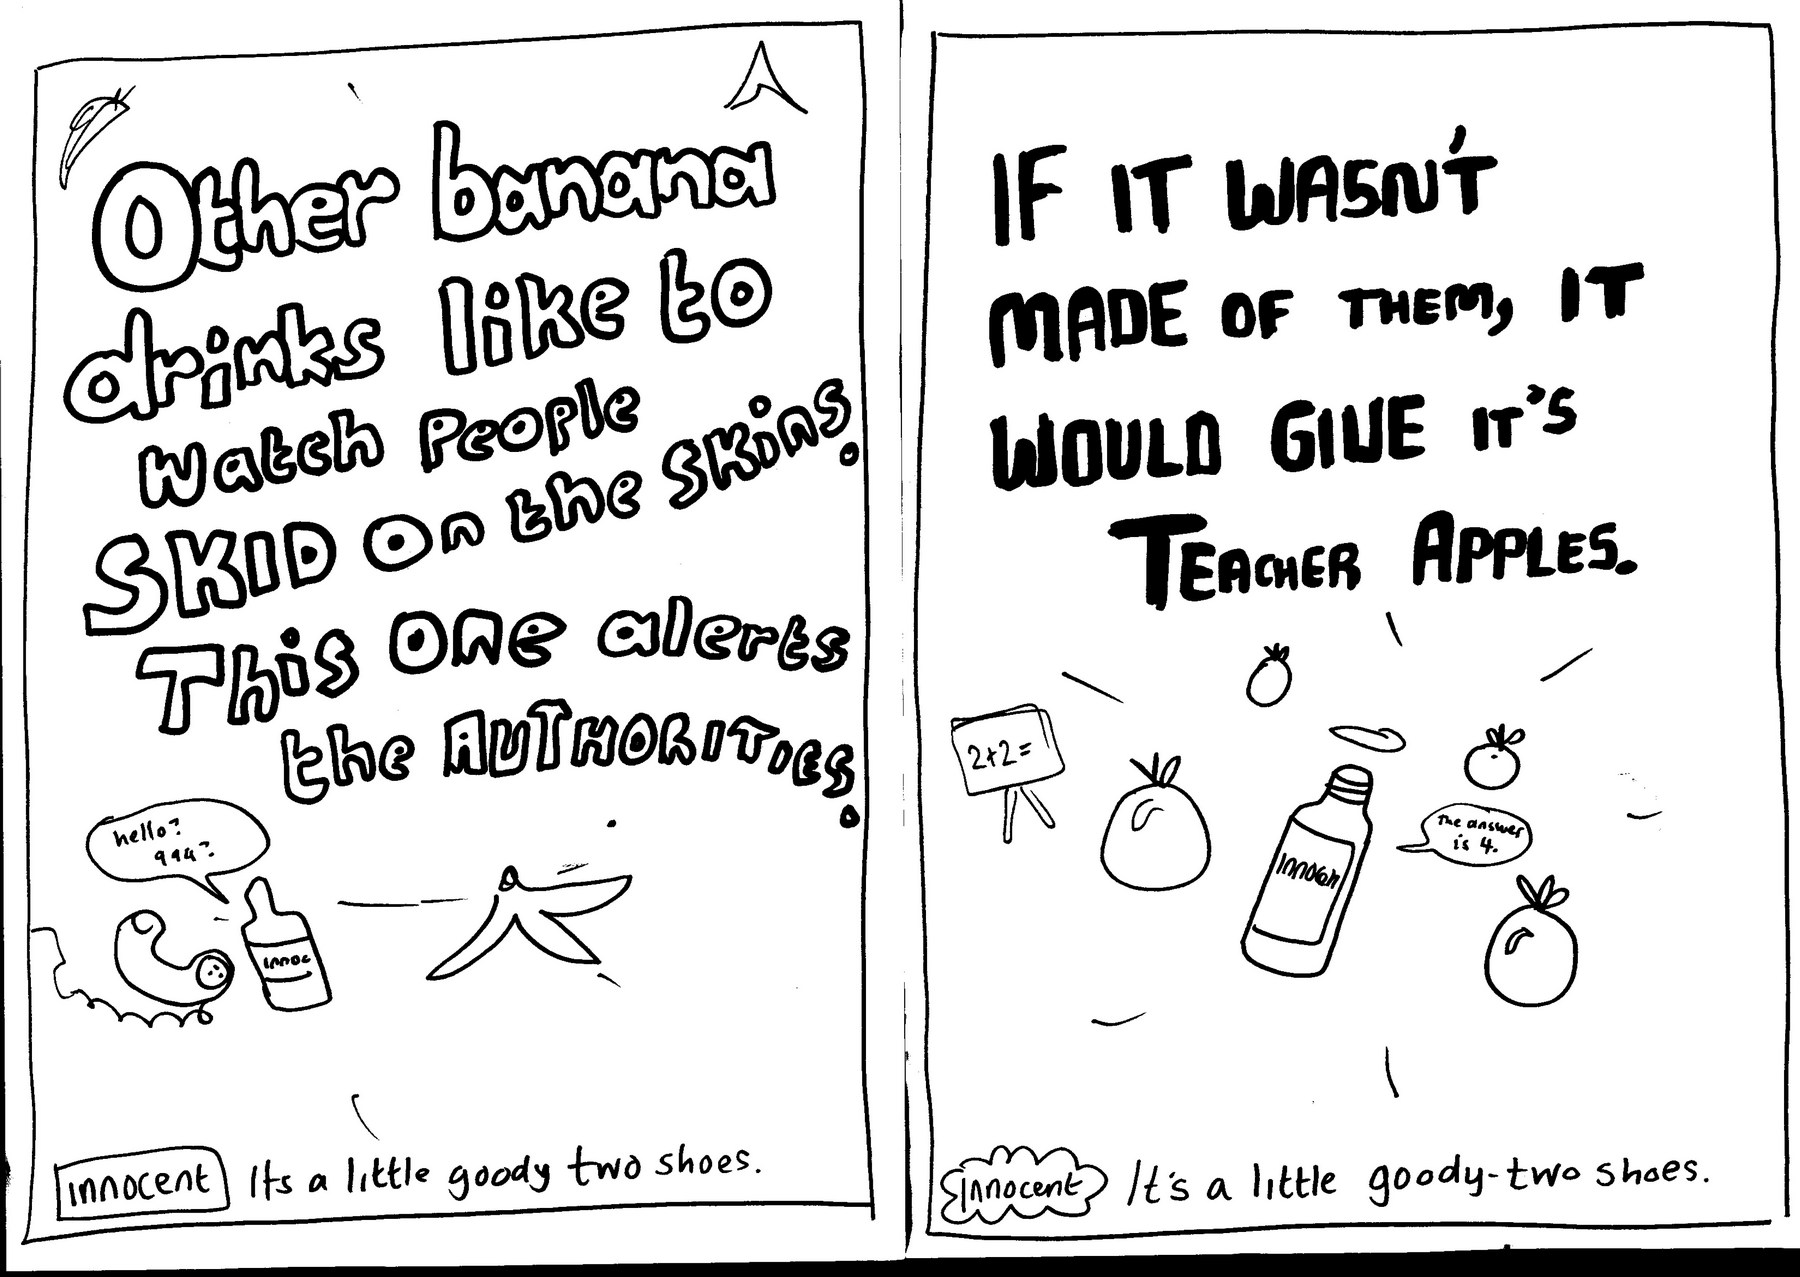 Other banana
drinks like to
watch People
SKID on the SKins.
This one alerts
the AUTHORITIES.
hello?
999?
INNOC
innocent Its a little goody two shoes.
IF IT WASN'T
MADE OF THEM, IT
WOULD GIVE IT'S
TEACHER APPLES.
2+2=
the answer
is 4.
INNOCEN
innocent It's a little goody-two shoes.